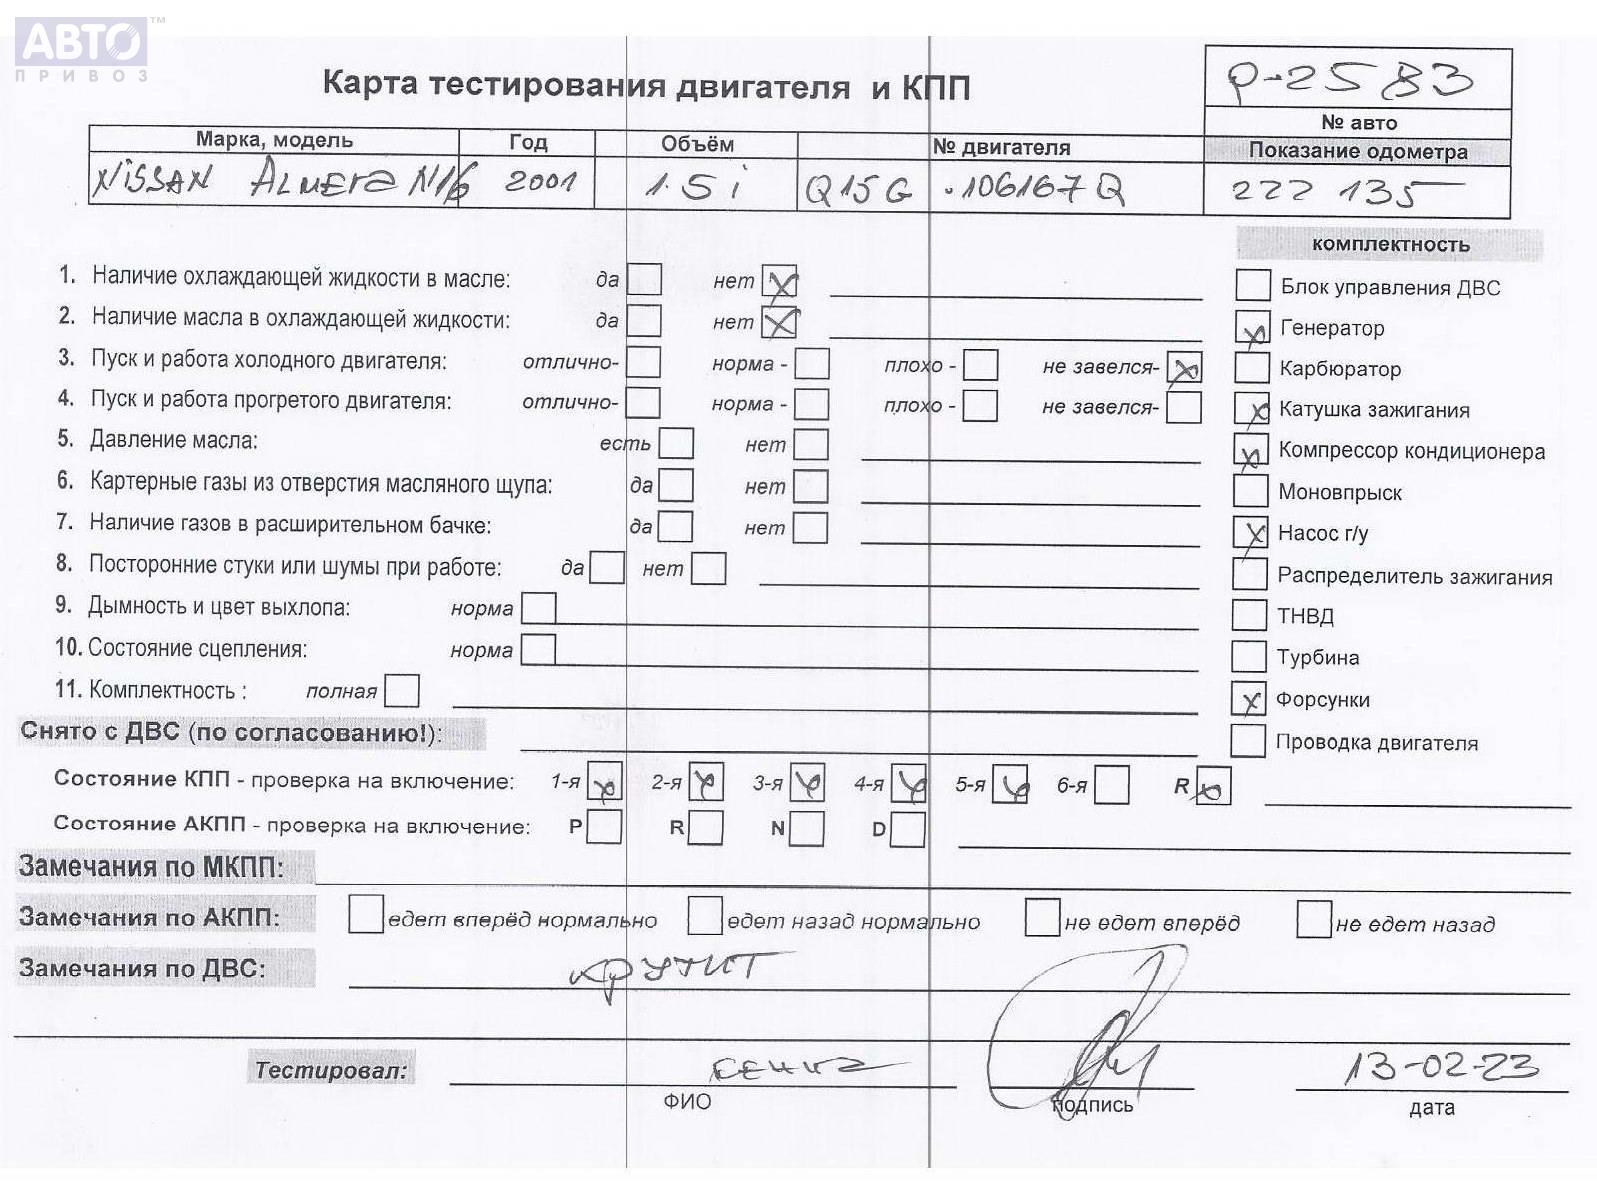 АВТО™
ПРИВОЗ
Карта тестирования двигателя и КПП
P-2583
№ авто
Марка, модель Год Объём № двигателя Показание одометра
NiSSAN ALMERA N16 2001 1.5 i Q15G .106167Q 222 135
комплектность
1. Наличие охлаждающей жидкости в масле: да нет X
Блок управления ДВС
2. Наличие масла в охлаждающей жидкости: да нет X
X Генератор
3. Пуск и работа холодного двигателя: отлично- норма - плохо - не завелся- X
Карбюратор
4. Пуск и работа прогретого двигателя: отлично- норма - плохо - не завелся-
X Катушка зажигания
5. Давление масла: есть нет
X Компрессор кондиционера
6. Картерные газы из отверстия масляного щупа: да нет
Моновпрыск
7. Наличие газов в расширительном бачке: да нет
X Насос г/у
8. Посторонние стуки или шумы при работе: да нет
Распределитель зажигания
9. Дымность и цвет выхлопа: норма
ТНВД
10. Состояние сцепления: норма
Турбина
11. Комплектность : полная
X Форсунки
Снято с ДВС (по согласованию!):
Проводка двигателя
Состояние КПП - проверка на включение: 1-я X 2-я X 3-я X 4-я X 5-я X 6-я R X
Состояние АКПП - проверка на включение: P R N D
Замечания по МКПП:
Замечания по АКПП: едет вперёд нормально едет назад нормально не едет вперёд не едет назад
Замечания по ДВС: крутит
Тестировал: 13-02-23
ФИО подпись дата